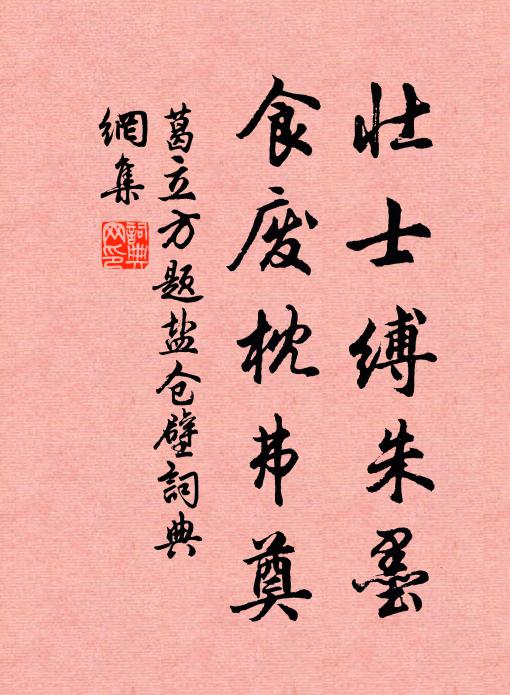 壮士缚朱墨
食废枕弗奠
葛立方题盐仓壁词典
網集
詞典网印